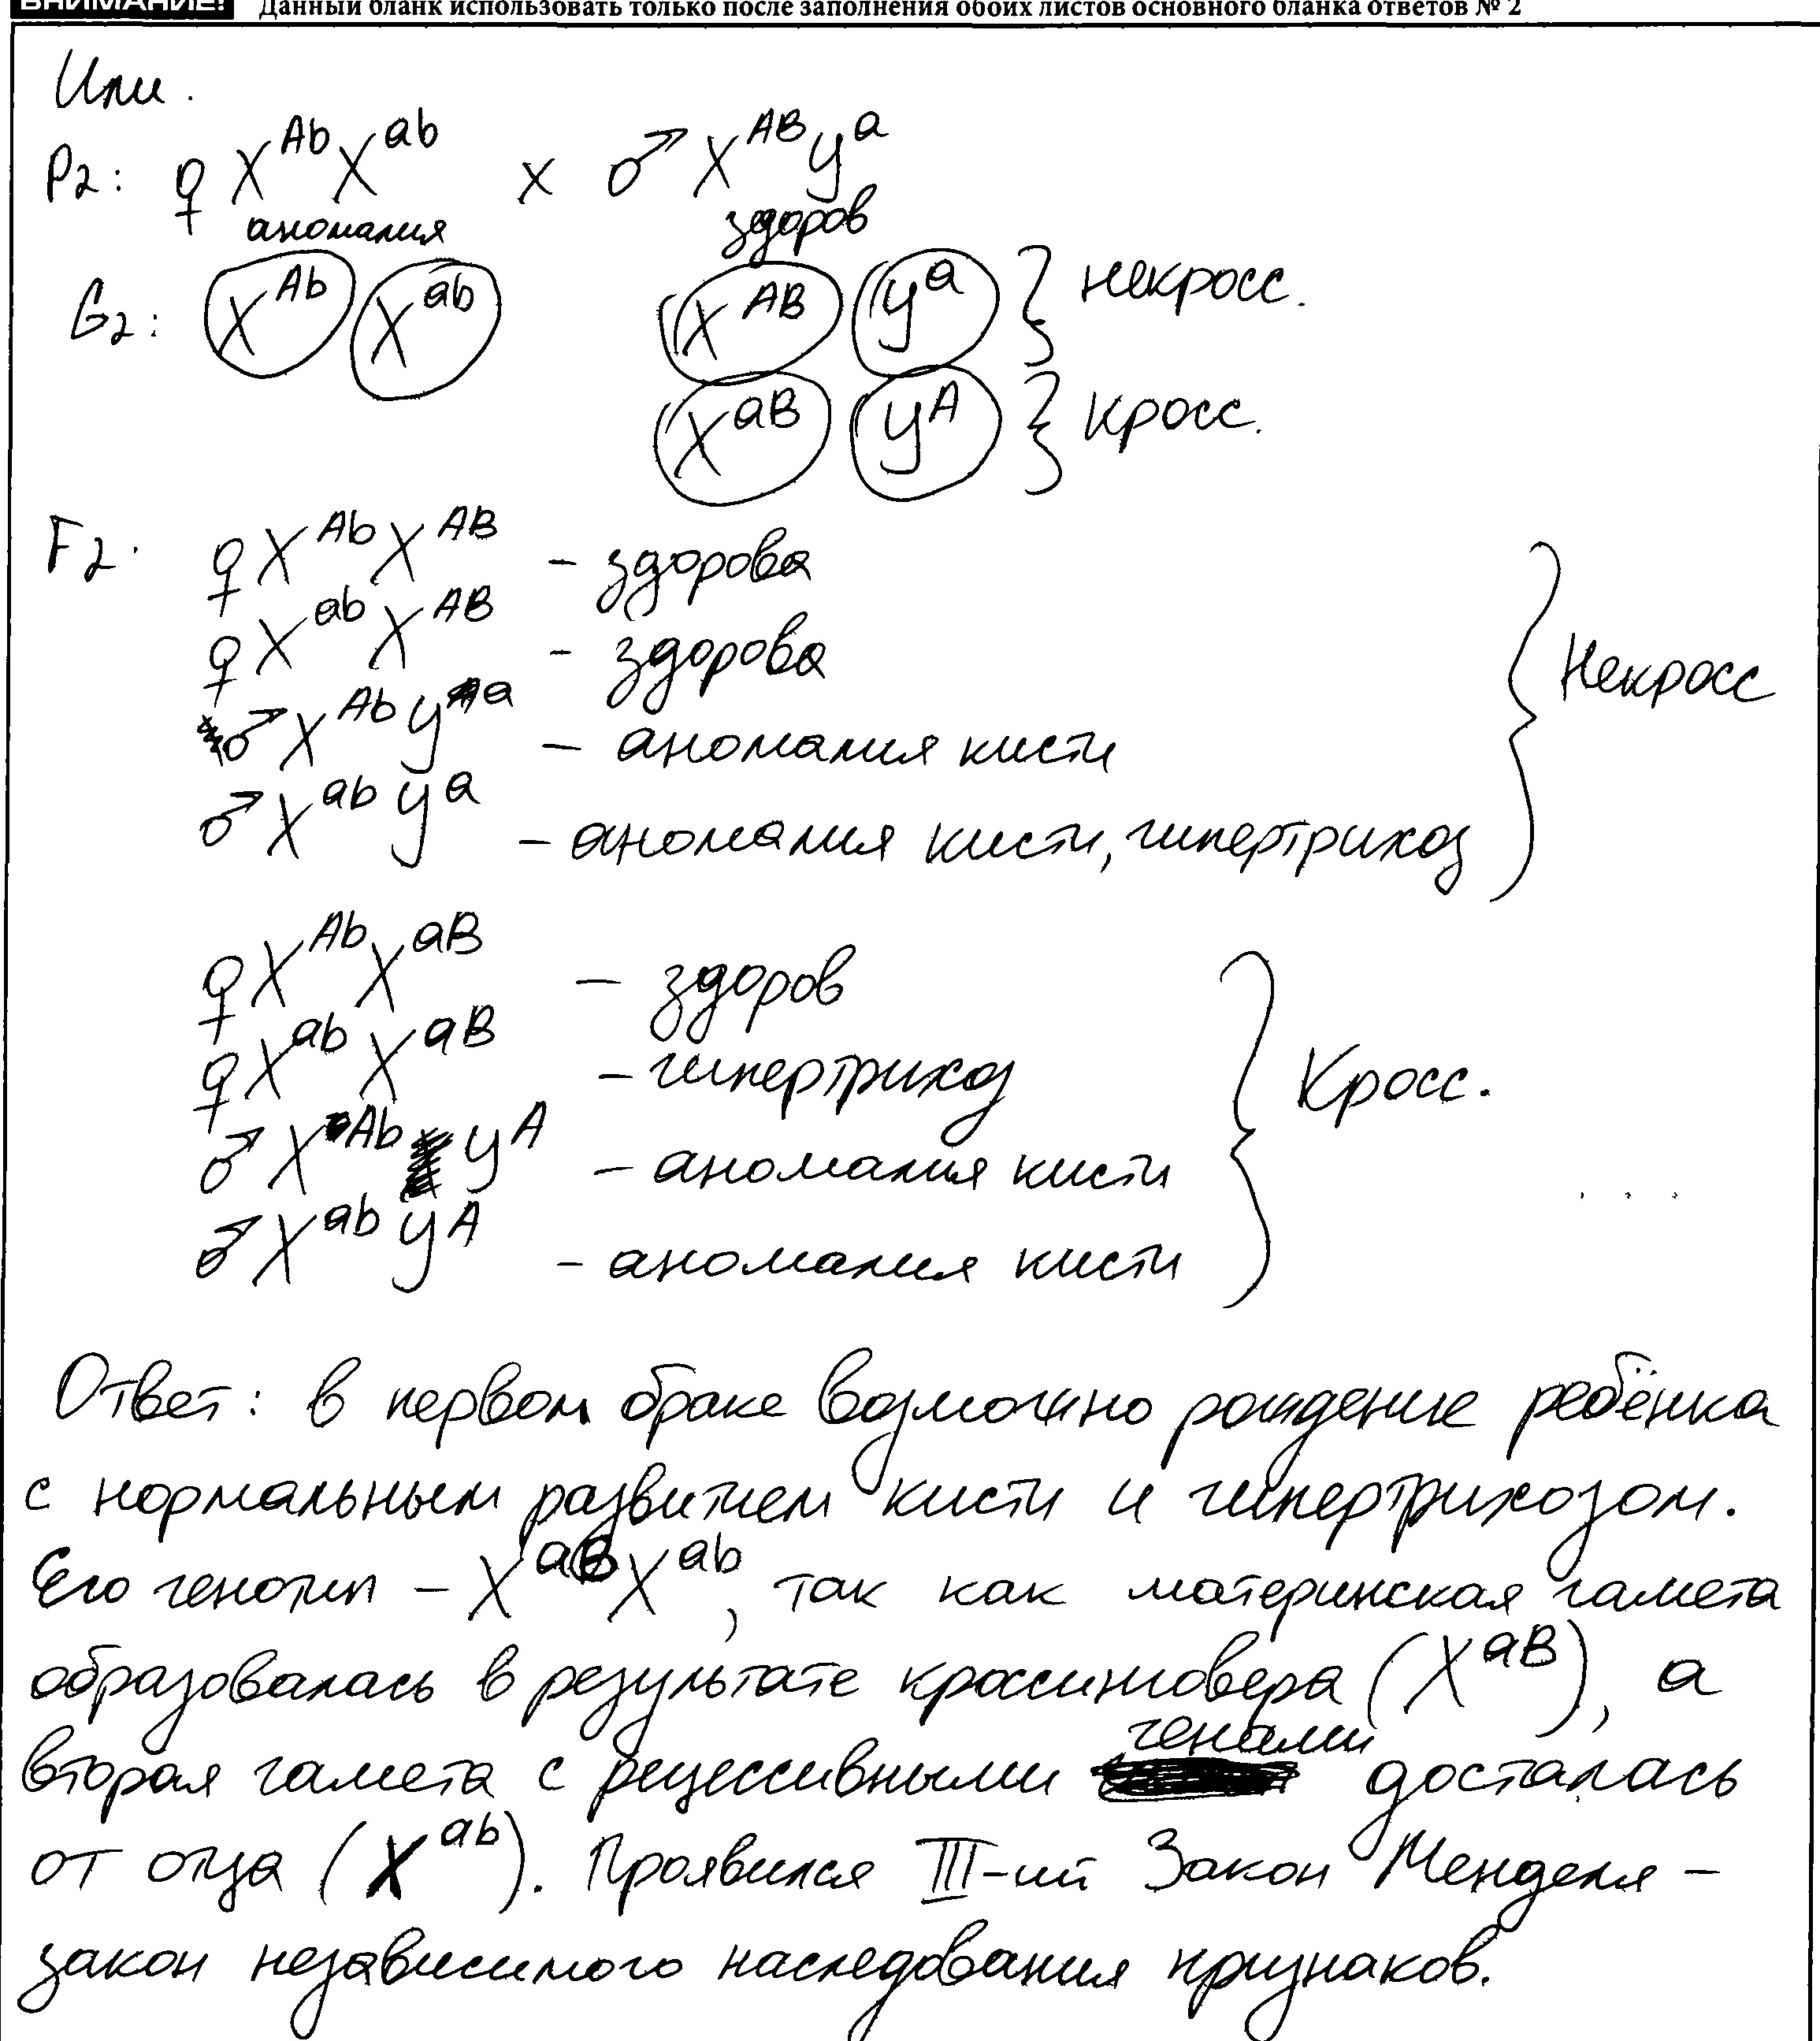 ВНИМАНИЕ! Данный бланк использовать только после заполнения обоих листов основного бланка ответов № 2
Или.
P₂: ♀ X^Ab X^ab x ♂ X^AB y^a
аномалия здоров
G₂: X^Ab X^ab X^AB y^a } некросс.
X^aB y^A } кросс.
F₂. ♀ X^Ab X^AB – здорова
♀ X^ab X^AB - здорова
♂ X^Ab y^a – аномалия кисти
♂ X^ab y^a – аномалия кисти, гипертрихоз
} Некросс
♀ X^Ab X^aB – здоров
♀ X^ab X^aB – гипертрихоз
♂ X^Ab y^A – аномалия кисти
♂ X^ab y^A – аномалия кисти
} Кросс.
Ответ: в первом браке возможно рождение ребёнка
с нормальным развитем кисти и гипертрихозом.
Его генотип – X^aB X^ab, так как материнская гамета
образовалась в результате кроссинговера (X^aB), а
вторая гамета с рецессивными генами досталась
от отца (X^ab). Проявился III-ий Закон Менделя –
закон независимого наследования признаков.